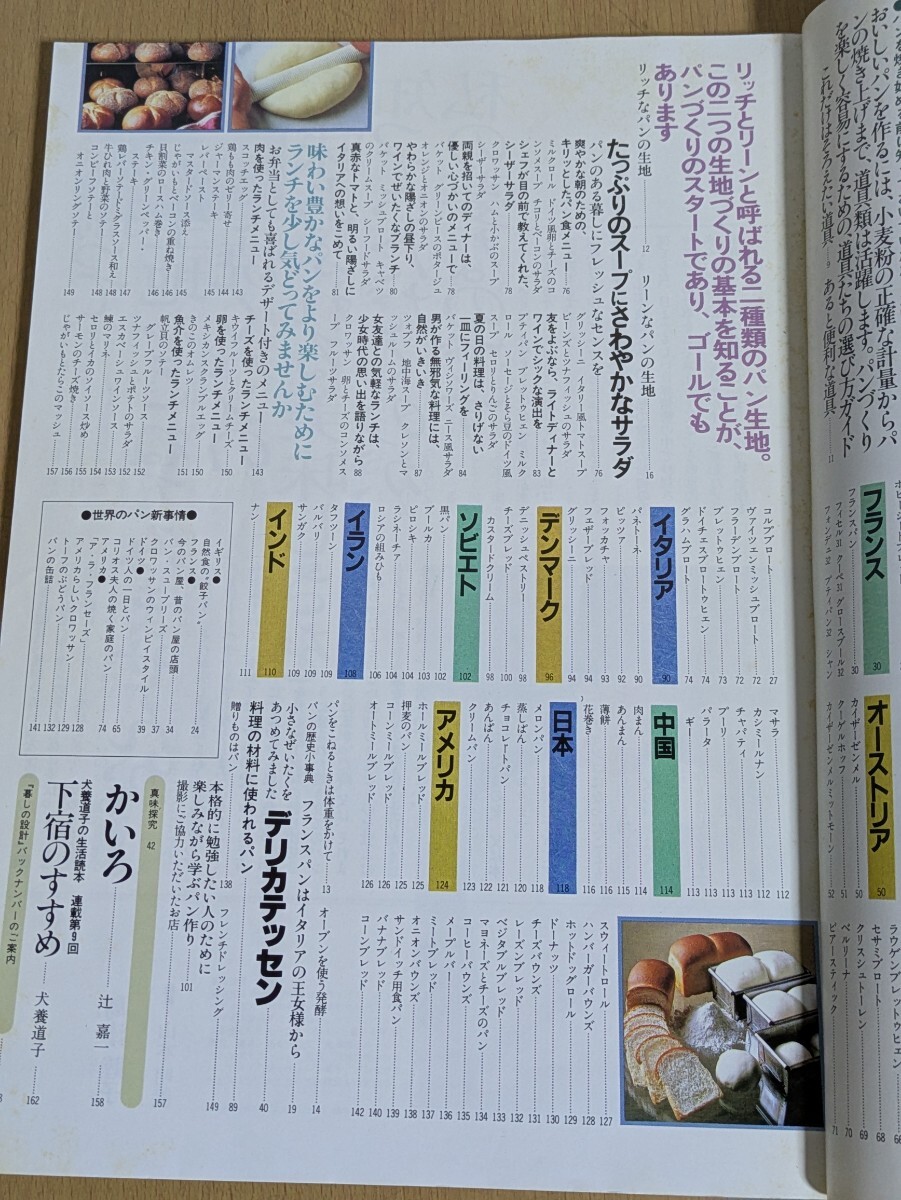 ンを焼き始める前に知
おいしいパンを作るには、小麦粉の正確な計量からパ
ンの焼き上げまで、道具類は活躍します。パンづくり
を楽しく容易にするための、道具たちの選び方ガイド
これだけはそろえたい、道具…9　あると便利な道具…11
リッチとリーンと呼ばれる二種類のパン生地。
この二つの生地づくりの基本を知ることが、
パンづくりのスタートであり、ゴールでも
あります
リッチなパンの生地 12　リーンなパンの生地 16
たっぷりのスープにさわやかなサラダ
パンのある暮しにフレッシュなセンスを 76
爽やかな朝のための、
キリッとした、パン食メニュー 76
シェフが目の前で教えてくれた、
シーザーサラダ 78
クロワッサン　ハムと小かぶのスープ
シーザーサラダ
両親を招いてのディナーは、
優しい心づかいのメニューで 78
バケット　グリーンピースのポタージュ
オレンジとオニオンのサラダ
やわらかな陽ざしの昼下り、
ワインでぜいたくなブランチ 80
真赤なトマトと、明るい陽ざしに
イタリアへの想いをこめて 81
グリッシーニ　イタリー風トマトスープ
ビーンズとツナフィッシュのサラダ
友をよぶなら、ライトディナーと
ワインでシックな演出を 83
夏の日の料理は、さりげない
一皿にフィーリングを 84
男が作る無邪気な料理には、
自然がいきいき 87
女友達との気軽なランチは、
少女時代の思い出を語りながら 88
クロワッサン　卵とチーズのコンソメス
ープ　フルーツサラダ
味わい豊かなパンをより楽しむために
ランチを少し気どってみませんか
お弁当としても喜ばれるデザート付きのメニュー 143
肉を使ったランチメニュー
スコッチエッグ 143
鶏もも肉のゼリー寄せ 144
ジャーマンステーキ 145
レバーペースト 145
マスタードソース添え
じゃがいもとベーコンの重ね焼き 146
貝割菜のロースハム巻き 146
チキン・グリーンペッパー・
ステーキ 147
鶏レバーソテードミグラスソース和え 148
牛ひれ肉と野菜のソテー 148
コンビーフソテーと
オニオンリングソテー 149
チーズを使ったランチメニュー
キウイフルーツとクリームチーズ 150
卵を使ったランチメニュー
メキシカンスクランブルエッグ 150
きのこのオムレツ 151
魚介を使ったランチメニュー
帆立貝のソテー
グレープフルーツソース 152
ツナフィッシュとポテトのサラダ 152
エスカベーシュワインソース 153
鰊のマリネ 154
セロリとイカのソイソース炒め 155
サーモンのチーズ焼き 156
じゃがいもとたらこのマッシュ 157
フランス 30
フランスパン 30
オーストリア 50
カイザーゼンメル 50
クーゲルホッフ 51
カイザーゼンメルミットモーン 52
セサミブロート 68
クリスシュトーレン 69
ベルリーナ 70
ビアースティック 71
コルンブロート 27
ヴァイツェンミッシュブロート 72
フラーデンブロート 72
ブレットウヒェン 73
ドイチェスブロートウヒェン 74
グラハムブロート 74
イタリア 90
パネトーネ 90
ピッツァ 92
フォッカチャ 93
フェザーブレッド 94
グリッシーニ 94
デンマーク 96
デニッシュペストリー 96
チーズブレッド 98
カスタードクリーム 100
ソビエト 102
黒パン 102
ブールカ 103
ピロシキ 104
ラシネーチァ 104
ロシアの組みひも 106
イラン 108
タフツーン 108
バルバリ 109
サンガク 109
インド 110
ナン 111
マサラ 112
カシミールナン 112
チャパティ 113
プーリ 113
パラータ 113
ギー 113
中国 114
肉まん 114
あんまん 115
薄餅 116
花巻き 116
日本 118
メロンパン 118
蒸しぱん 120
チョコレートパン 121
あんぱん 122
クリームパン 123
アメリカ 124
ホールミールブレッド 124
押麦のパン 125
コーンミールブレッド 125
オートミールブレッド 126
スウィートロール 127
ハンバーガーバウンズ 128
ホットドッグロール 128
ドーナッツ 129
チーズバウンズ 130
レーズンブレッド 132
ベジタブルブレッド 133
マヨネーズとチーズのパン 134
コーヒーバウンズ 135
メープルバー 136
ミートブレッド 137
オニオンバウンズ 138
サンドイッチ用食パン 139
バナナブレッド 140
コーンブレッド 142
●世界のパン新事情●
イギリス●
自然食の“餃子パン” 24
フランス●
今のパン屋、昔のパン屋の店頭 34
パン・スュープリーズ 37
クロワッサンのウィンピイスタイル 39
ドイツ●
ドイツ人の一日とパン 65
コリオス夫人の焼く家庭のパン 74
アメリカ●
「ア・ラ・フランセーズ」 128
アメリカらしいクロワッサン 129
トーフのぶどうパン 132
パンの缶詰 141
パンをこねるときは体重をかけて 13　オーブンを使う発酵 14
パンの歴史小事典　フランスパンはイタリアの王女様から 19
小さなぜいたくを
あつめてみました デリカテッセン 40
料理の材料に使われるパン 89
贈りものはパン 138　フレンチドレッシング 149
本格的に勉強したい人のために
楽しみながら学ぶパン作り 157
撮影にご協力いただいたお店 101
真味探究 42
かいろ 辻 嘉一 158
犬養道子の生活読本　連載第9回
下宿のすすめ 犬養道子 162
『暮しの設計』バックナンバーのご案内